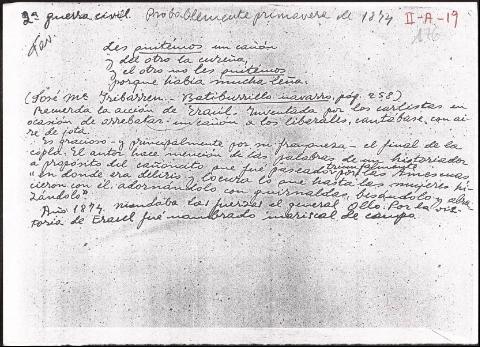 2ª guerra civil. Probablemente primavera de 1874 II-A-19
176
Les quitemos un cañón
y del otro la cureña,
y el otro no les quitemos
porque había mucha leña.
(José Mª Iribarren.- Batiburrillo navarro, pág. 258)
Recuerda la acción de Eraul. Inventada por los carlistas en
ocasión de arrebatar un cañón a los liberales, cantábase, con ai-
re de jota.
Es gracioso - y principalmente por su franqueza - el final de la
copla. El autor hace mención de las palabras de un historiador
a propósito del cañoncito que fué paseado triunfalmente por las Amescuas,
"en donde era delirio y locura lo que hasta las mujeres hi-
cieron con él, adornándolo con guirnaldas, besándolo y abra-
zándolo".
Año 1874 mandaba las fuerzas el general Ollo. Por la vic-
toria de Eraul fué nombrado mariscal de campo.